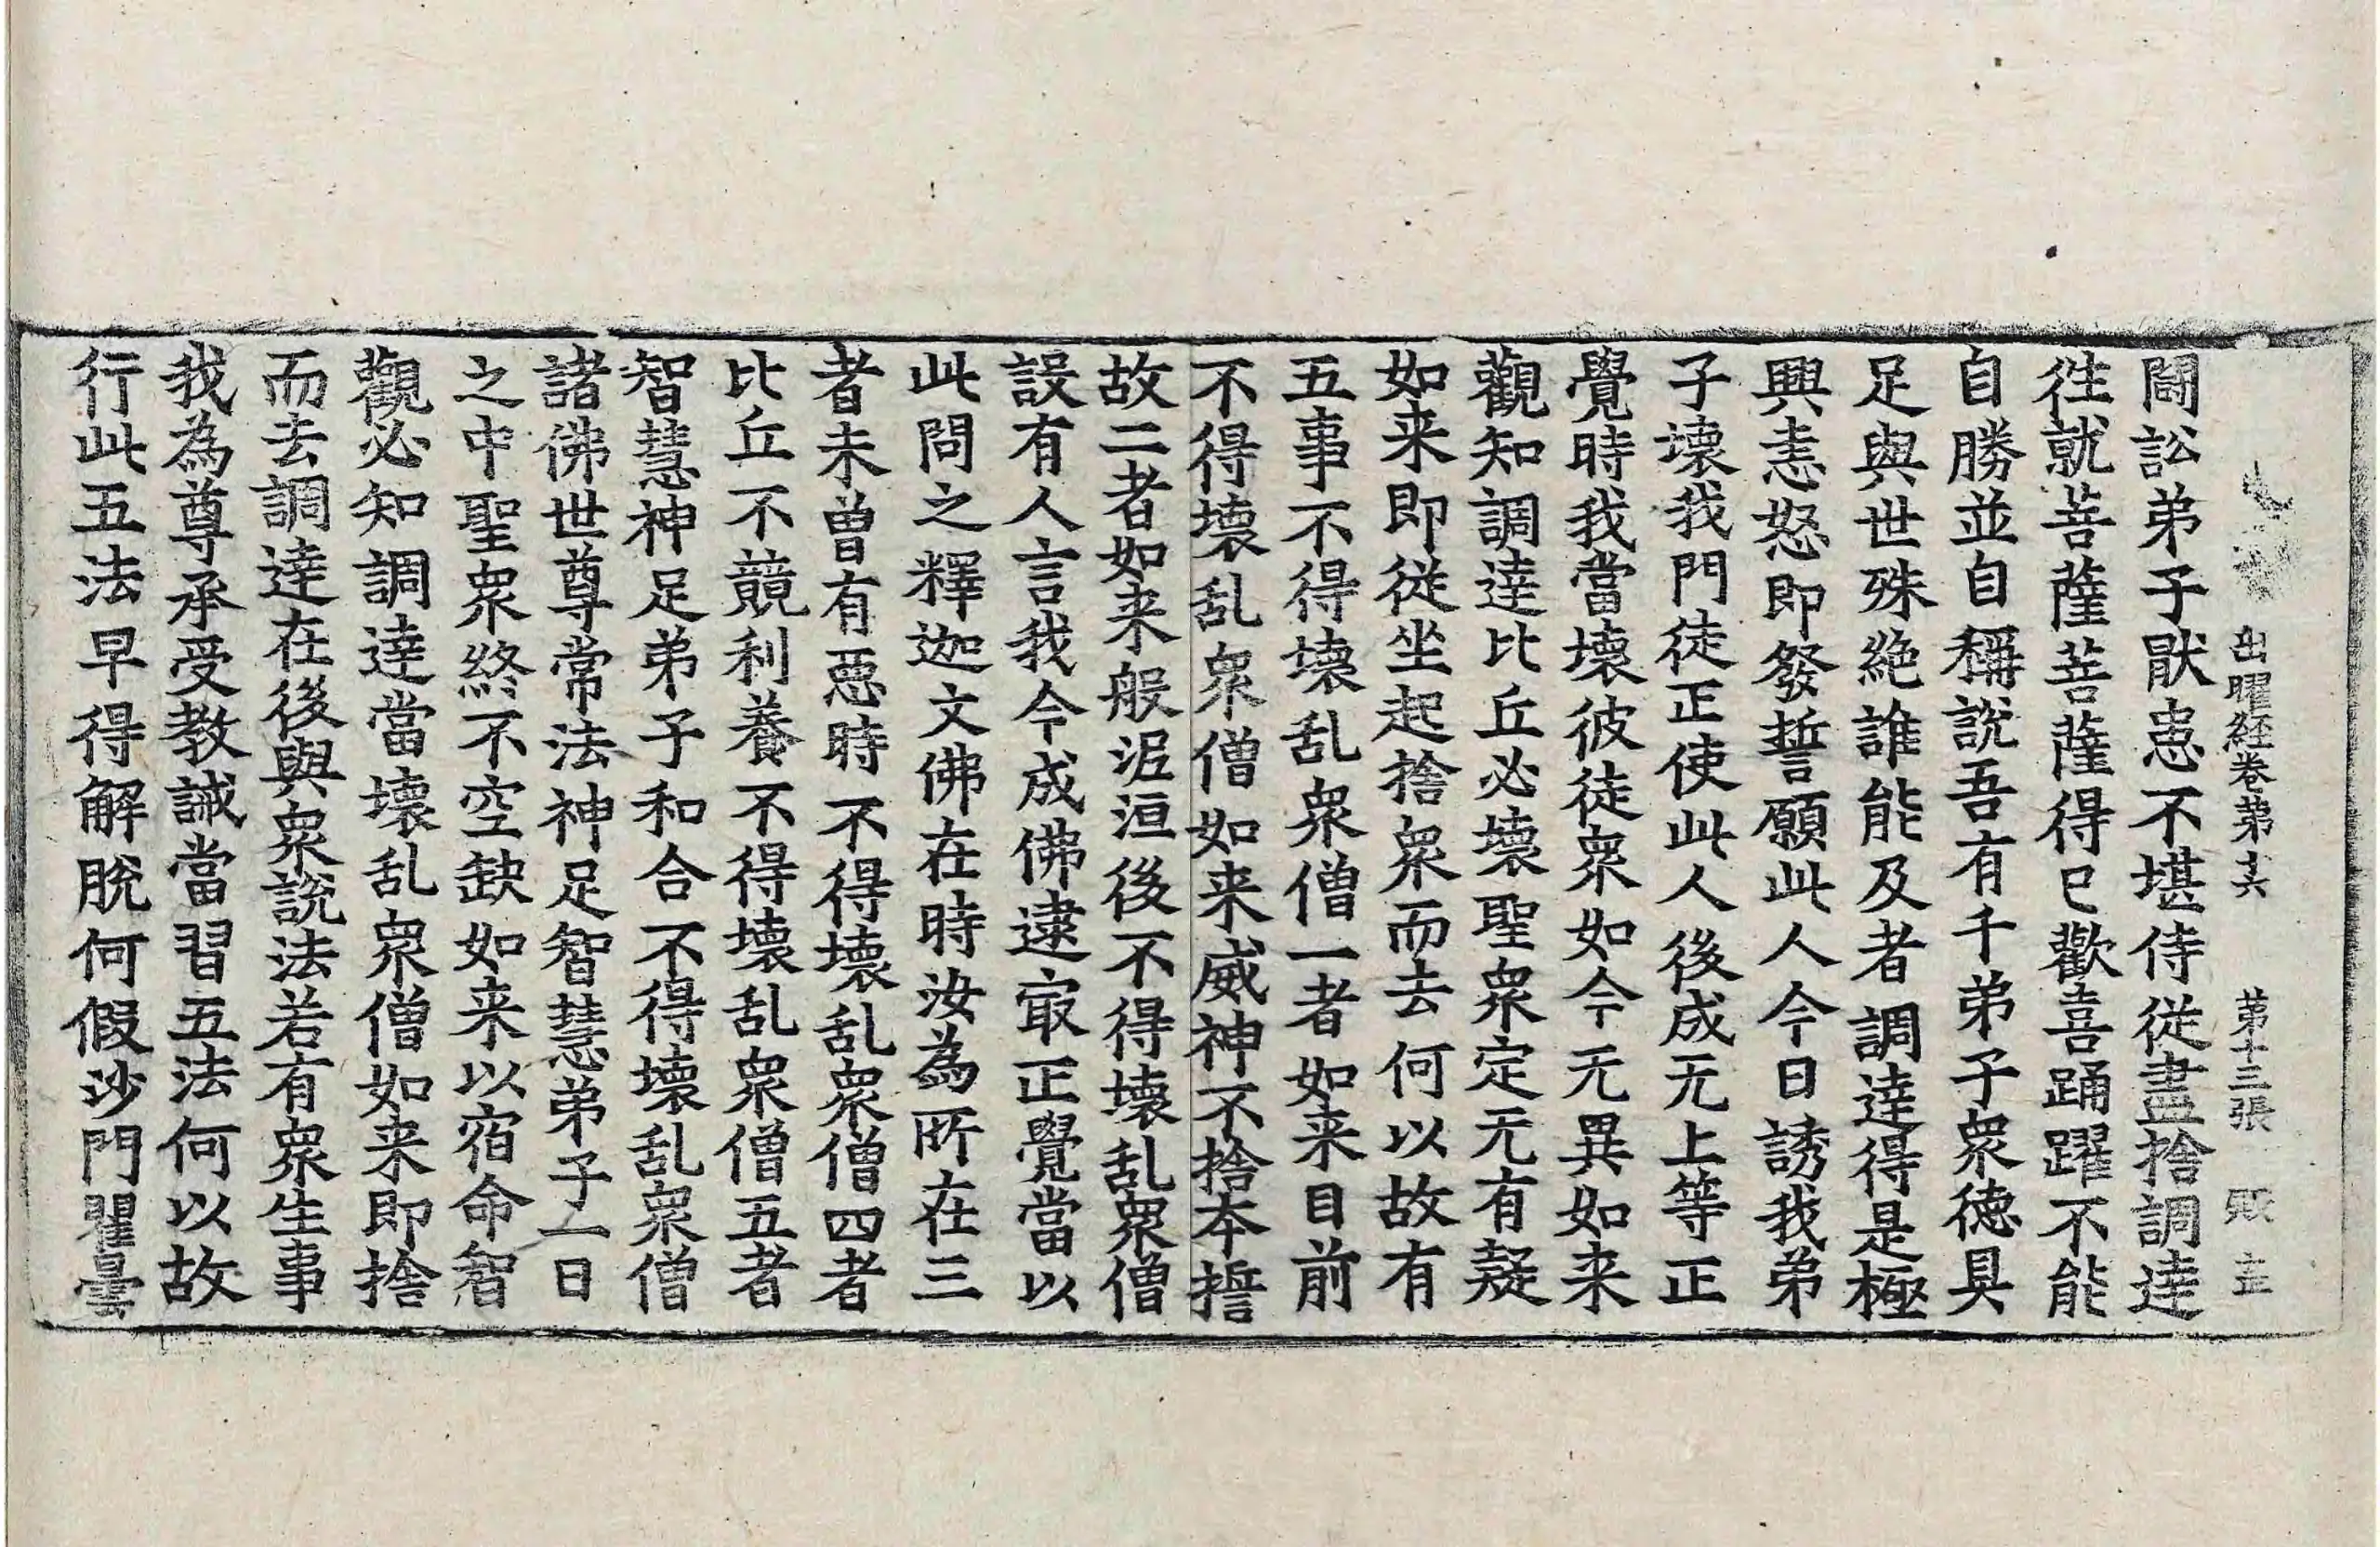 出曜經卷苐十六 苐十三張 㱾 主
鬪訟弟子猒患不堪侍從盡捨調達
徃就菩薩菩薩得已歡喜踊躍不能
自勝並自稱說吾有千弟子衆德具
足與世殊絶誰能及者調達得是極
興恚怒即發誓願此人今日誘我弟
子壞我門徒正使此人後成无上等正
覺時我當壞彼徒衆如今无異如来
觀知調達比丘必壞聖衆定无有疑
如来即従坐起捨衆而去何以故有
五事不得壞乱衆僧一者如来目前
不得壞乱衆僧如来威神不捨夲誓
故二者如来般泥洹後不得壞乱衆僧
設有人言我今成佛逮冣正覺當以
此問之釋迦文佛在時汝為所在三
者未曾有惡時不得壞乱衆僧四者
比丘不競利養不得壞乱衆僧五者
智慧神足弟子和合不得壞乱衆僧
諸佛世尊常法神足智慧弟子一日
之中聖衆終不空缺如来以宿命智
觀必知調達當壞乱衆僧如来即捨
而去調達在後與衆說法若有衆生事
我為尊承受教誡當習五法何以故
行此五法早得解脫何假沙門瞿曇